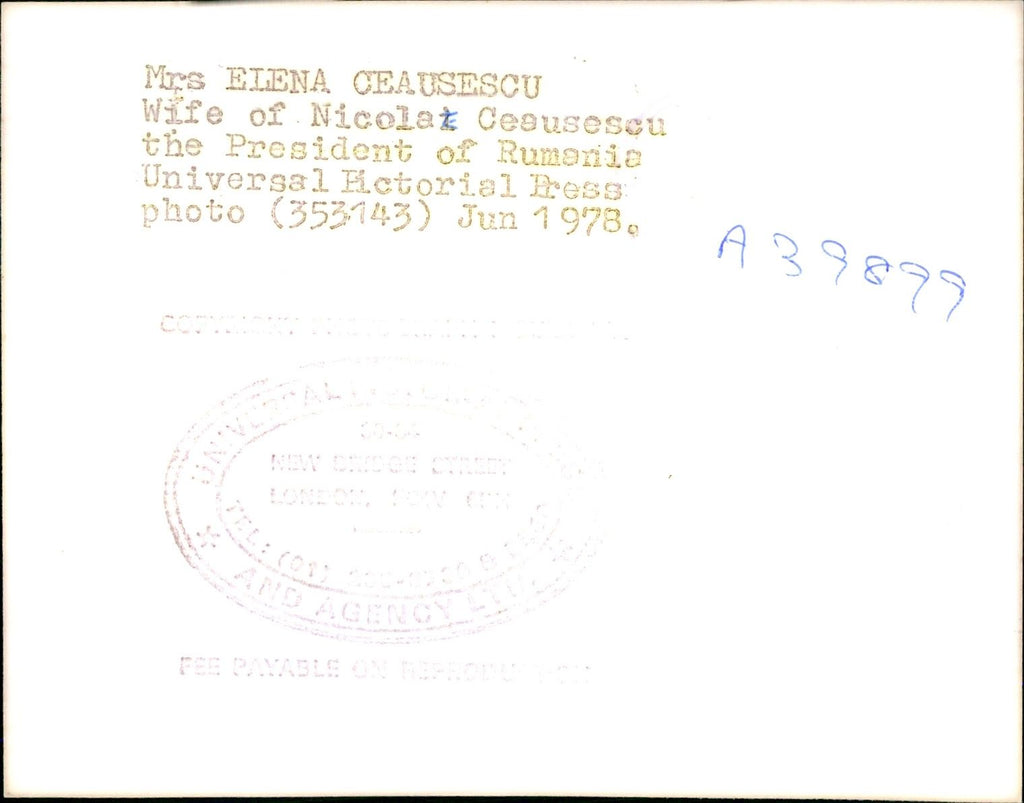 Mrs ELENA CEAUSESCU
Wife of Nicolae Ceausescu
the President of Rumania
Universal Pictorial Press
photo (353143) Jun 1978.
A39899
COPYRIGHT
UNIVERSAL
NEW BRIDGE STREET
LONDON,
TEL: (01)
* AND AGENCY LTD.
FEE PAYABLE ON REPRODUCTION